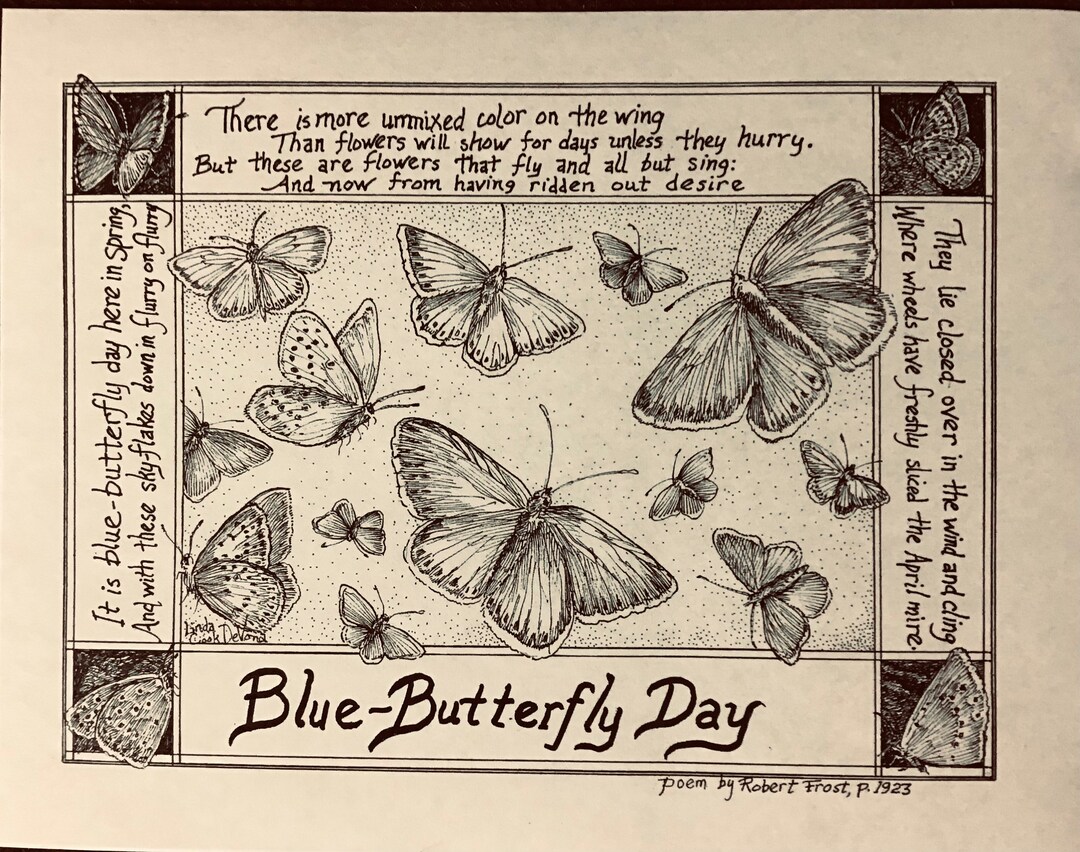 It is blue-butterfly day here in Spring,
And with these sky-flakes down in flurry on flurry
There is more unmixed color on the wing
Than flowers will show for days unless they hurry.
But these are flowers that fly and all but sing:
And now from having ridden out desire
They lie closed over in the wind and cling
Where wheels have freshly sliced the April mire.
Linda
Cook DeVona
Blue-Butterfly Day
poem by Robert Frost, p. 1923